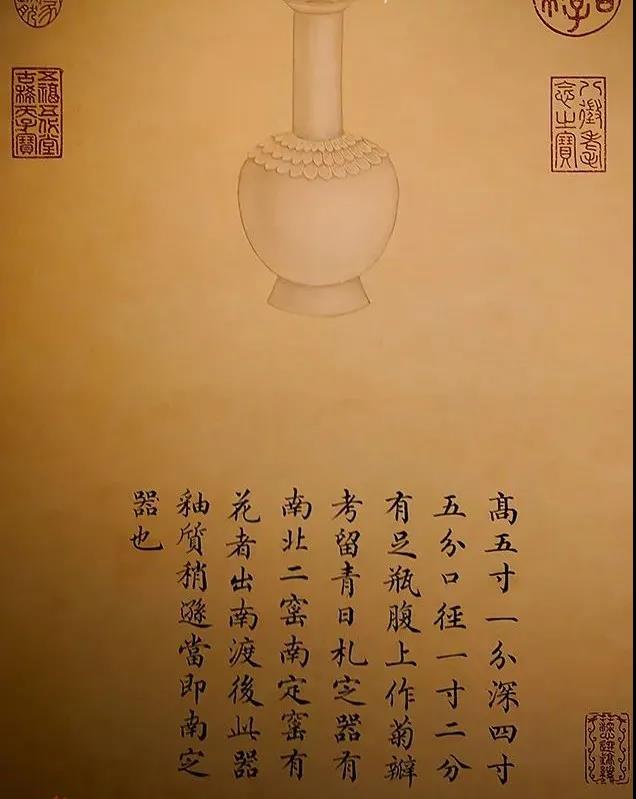 高五寸一分深四寸
五分口徑一寸二分
有足瓶腹上作菊瓣
考留青日札定器有
南北二窑南定窑有
花者出南渡後此器
釉質稍遜當即南定
器也
八徵耄
念之寶
五福五代堂
古稀天子寶